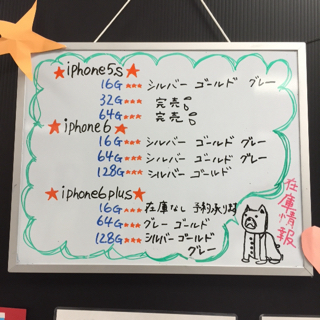 ★iphone5s★
16G★★★ シルバー ゴールド グレー
32G★★★ 完売
64G★★★ 完売
★iphone6★
16G★★★ シルバー ゴールド グレー
64G★★★ シルバー ゴールド グレー
128G★★★ シルバー ゴールド
★iphone6plus★
16G★★★ 在庫なし 予約承ります
64G★★★ グレー ゴールド
128G★★★ シルバー ゴールド
グレー
在庫情報